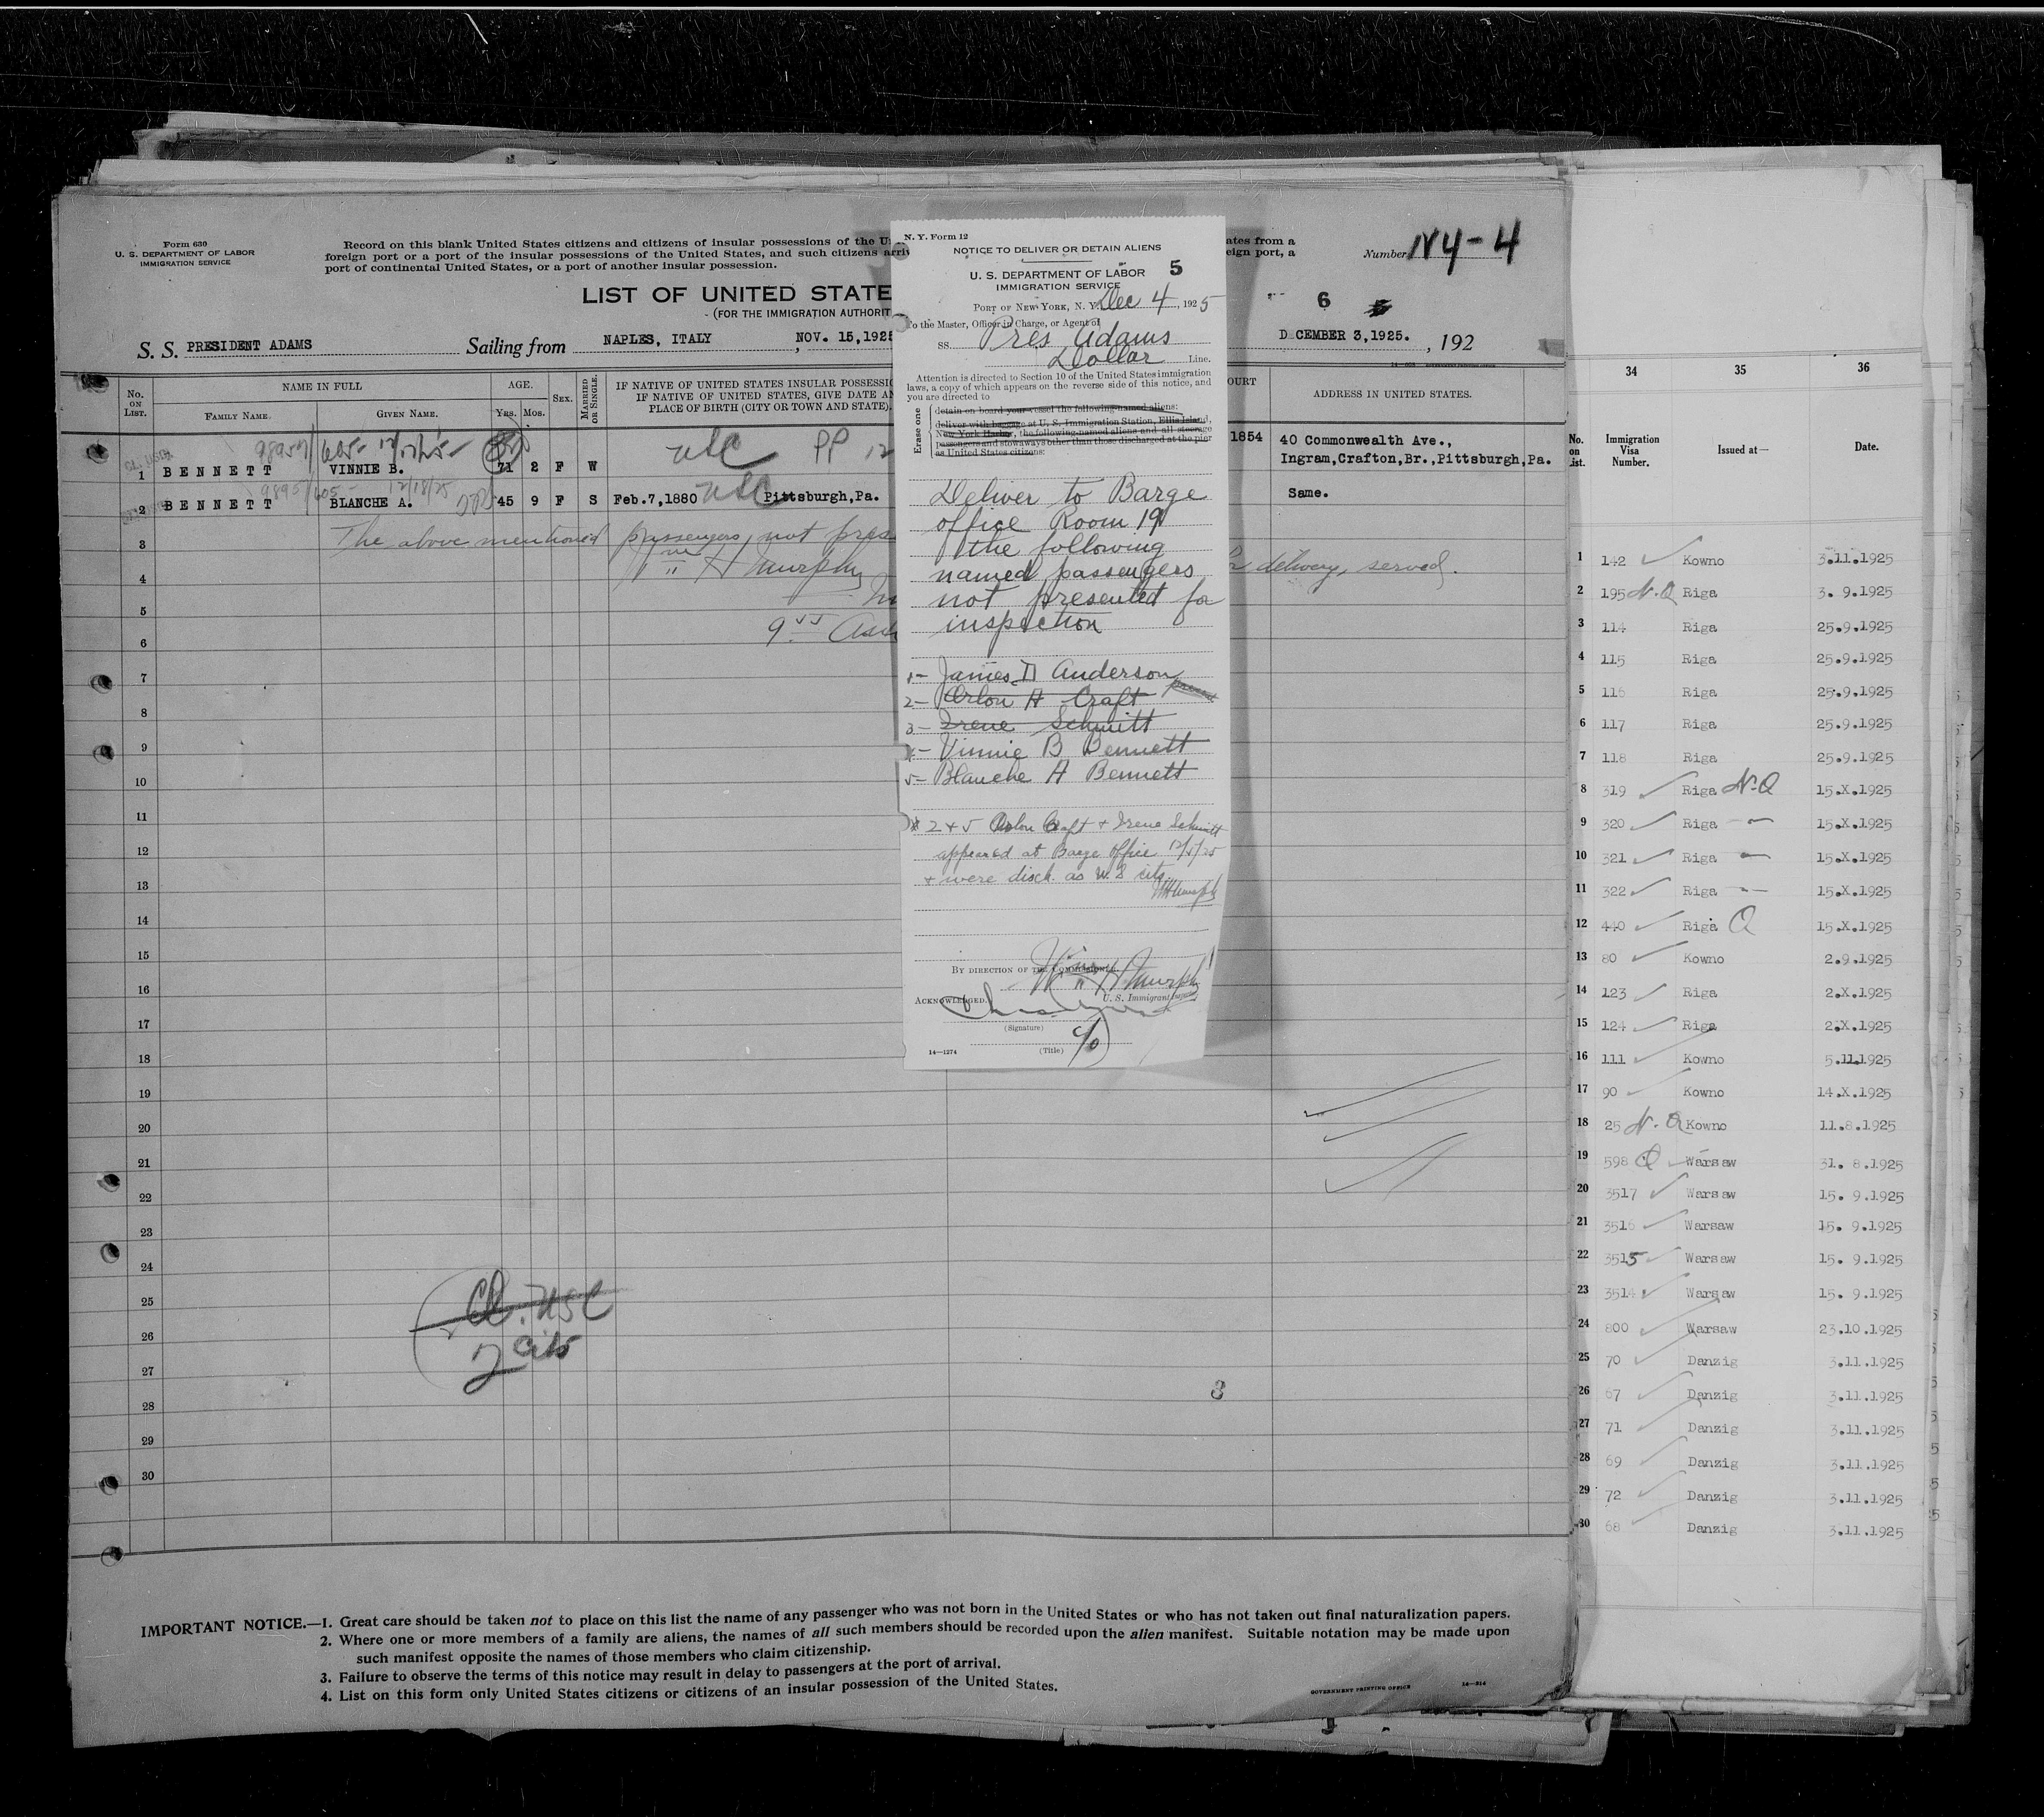 Form 630
U. S. DEPARTMENT OF LABOR
IMMIGRATION SERVICE
Record on this blank United States citizens and citizens of insular possessions of the U
foreign port or a port of the insular possessions of the United States, and such citizens arri
port of continental United States, or a port of another insular possession.
ates from a
eign port, a
Number 184-4
LIST OF UNITED STATE
(FOR THE IMMIGRATION AUTHORIT
6
S. S. PRESIDENT ADAMS Sailing from NAPLES, ITALY, NOV. 15,1925
D CEMBER 3,1925. , 192
No. ON LIST.
NAME IN FULL
FAMILY NAME. GIVEN NAME.
AGE.
Yrs. Mos.
SEX.
MARRIED OR SINGLE.
IF NATIVE OF UNITED STATES INSULAR POSSESSIO
IF NATIVE OF UNITED STATES, GIVE DATE AN
PLACE OF BIRTH (CITY OR TOWN AND STATE).
OURT
ADDRESS IN UNITED STATES.
USC PP 12
1 BENNETT VINNIE B. 71 2 F W
1854 40 Commonwealth Ave.,
Ingram,Crafton,Br.,Pittsburgh,Pa.
9895/605- 12/18/25
2 BENNETT BLANCHE A. 45 9 F S Feb.7,1880 USC Pittsburgh,Pa. Same.
The above mentioned passengers, not pres
delivery, served.
Wm H Murphy
3
4
5
6
7
8
9
10
11
12
13
14
15
16
17
18
19
20
21
22
23
24
25
26
27
28
29
30
Cl. USC
2 Cits
3
IMPORTANT NOTICE.—1. Great care should be taken not to place on this list the name of any passenger who was not born in the United States or who has not taken out final naturalization papers.
2. Where one or more members of a family are aliens, the names of all such members should be recorded upon the alien manifest. Suitable notation may be made upon
such manifest opposite the names of those members who claim citizenship.
3. Failure to observe the terms of this notice may result in delay to passengers at the port of arrival.
4. List on this form only United States citizens or citizens of an insular possession of the United States.
GOVERNMENT PRINTING OFFICE 14—314
N. Y. Form 12
NOTICE TO DELIVER OR DETAIN ALIENS
U. S. DEPARTMENT OF LABOR 5
IMMIGRATION SERVICE
PORT OF NEW YORK, N. Y. Dec 4, 1925
To the Master, Officer in Charge, or Agent of
SS. Pres Adams
Dollar Line.
Attention is directed to Section 10 of the United States immigration
laws, a copy of which appears on the reverse side of this notice, and
you are directed to
Erase one
detain on board your vessel the following-named aliens:
deliver with baggage at U. S. Immigration Station, Ellis Island,
New York Harbor, the following-named aliens and all steerage
passengers and stowaways other than those discharged at the pier
as United States citizens:
Deliver to Barge
office Room 19
the following
named passengers
not presented for
inspection
1- James D Anderson
2- Orlon H Craft present
3- Irene Schmitt
4- Vinnie B Bennett
5- Blanche A Bennett
* 2 + 5 Orlon Craft + Irene Schmitt
appeared at Barge office 12/5/25
+ were disch. as U. S cits.
WHMurphy
BY DIRECTION OF THE COMMISSIONER.
Wm H Murphy
ACKNOWLEDGED. U. S. Immigrant Inspector
(Signature)
14—1274 (Title) C/O
34 35 36
No. on List. Immigration Visa Number. Issued at— Date.
1 142 Kowno 3.11.1925
2 195 N.Q Riga 3. 9.1925
3 114 Riga 25.9.1925
4 115 Riga 25.9.1925
5 116 Riga 25.9.1925
6 117 Riga 25.9.1925
7 118 Riga 25.9.1925
8 319 Riga N-Q 15.X.1925
9 320 Riga — 15.X.1925
10 321 Riga — 15.X.1925
11 322 Riga — 15.X.1925
12 440 Riga Q 15.X.1925
13 80 Kowno 2.9.1925
14 123 Riga 2.X.1925
15 124 Riga 2.X.1925
16 111 Kowno 5.11.1925
17 90 Kowno 14.X.1925
18 25 N.Q Kowno 11.8.1925
19 598 Q Warsaw 31. 8.1925
20 3517 Warsaw 15. 9.1925
21 3516 Warsaw 15. 9.1925
22 3515 Warsaw 15. 9.1925
23 3514 Warsaw 15. 9.1925
24 800 Warsaw 23.10.1925
25 70 Danzig 3.11.1925
26 67 Danzig 3.11.1925
27 71 Danzig 3.11.1925
28 69 Danzig 3.11.1925
29 72 Danzig 3.11.1925
30 68 Danzig 3.11.1925